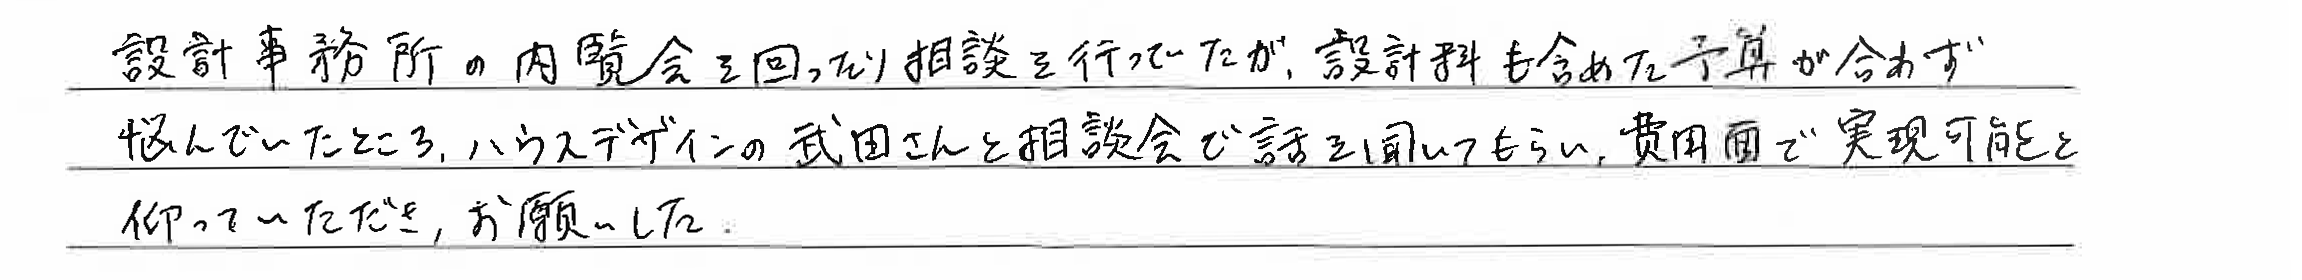 設計事務所の内覧会を回ったり相談を行っていたが、設計料も含めた予算が合わず
悩んでいたところ、ハウスデザインの武田さんと相談会で話を聞いてもらい、費用面で実現可能と
仰っていただき、お願いした.